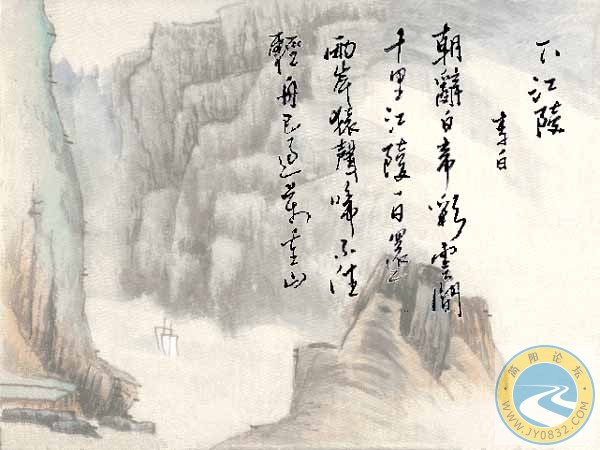 下江陵
李白
朝辭白帝彩雲間
千里江陵一日還
兩岸猿聲啼不住
輕舟已過萬重山
简阳论坛
WWW.JY0832.COM